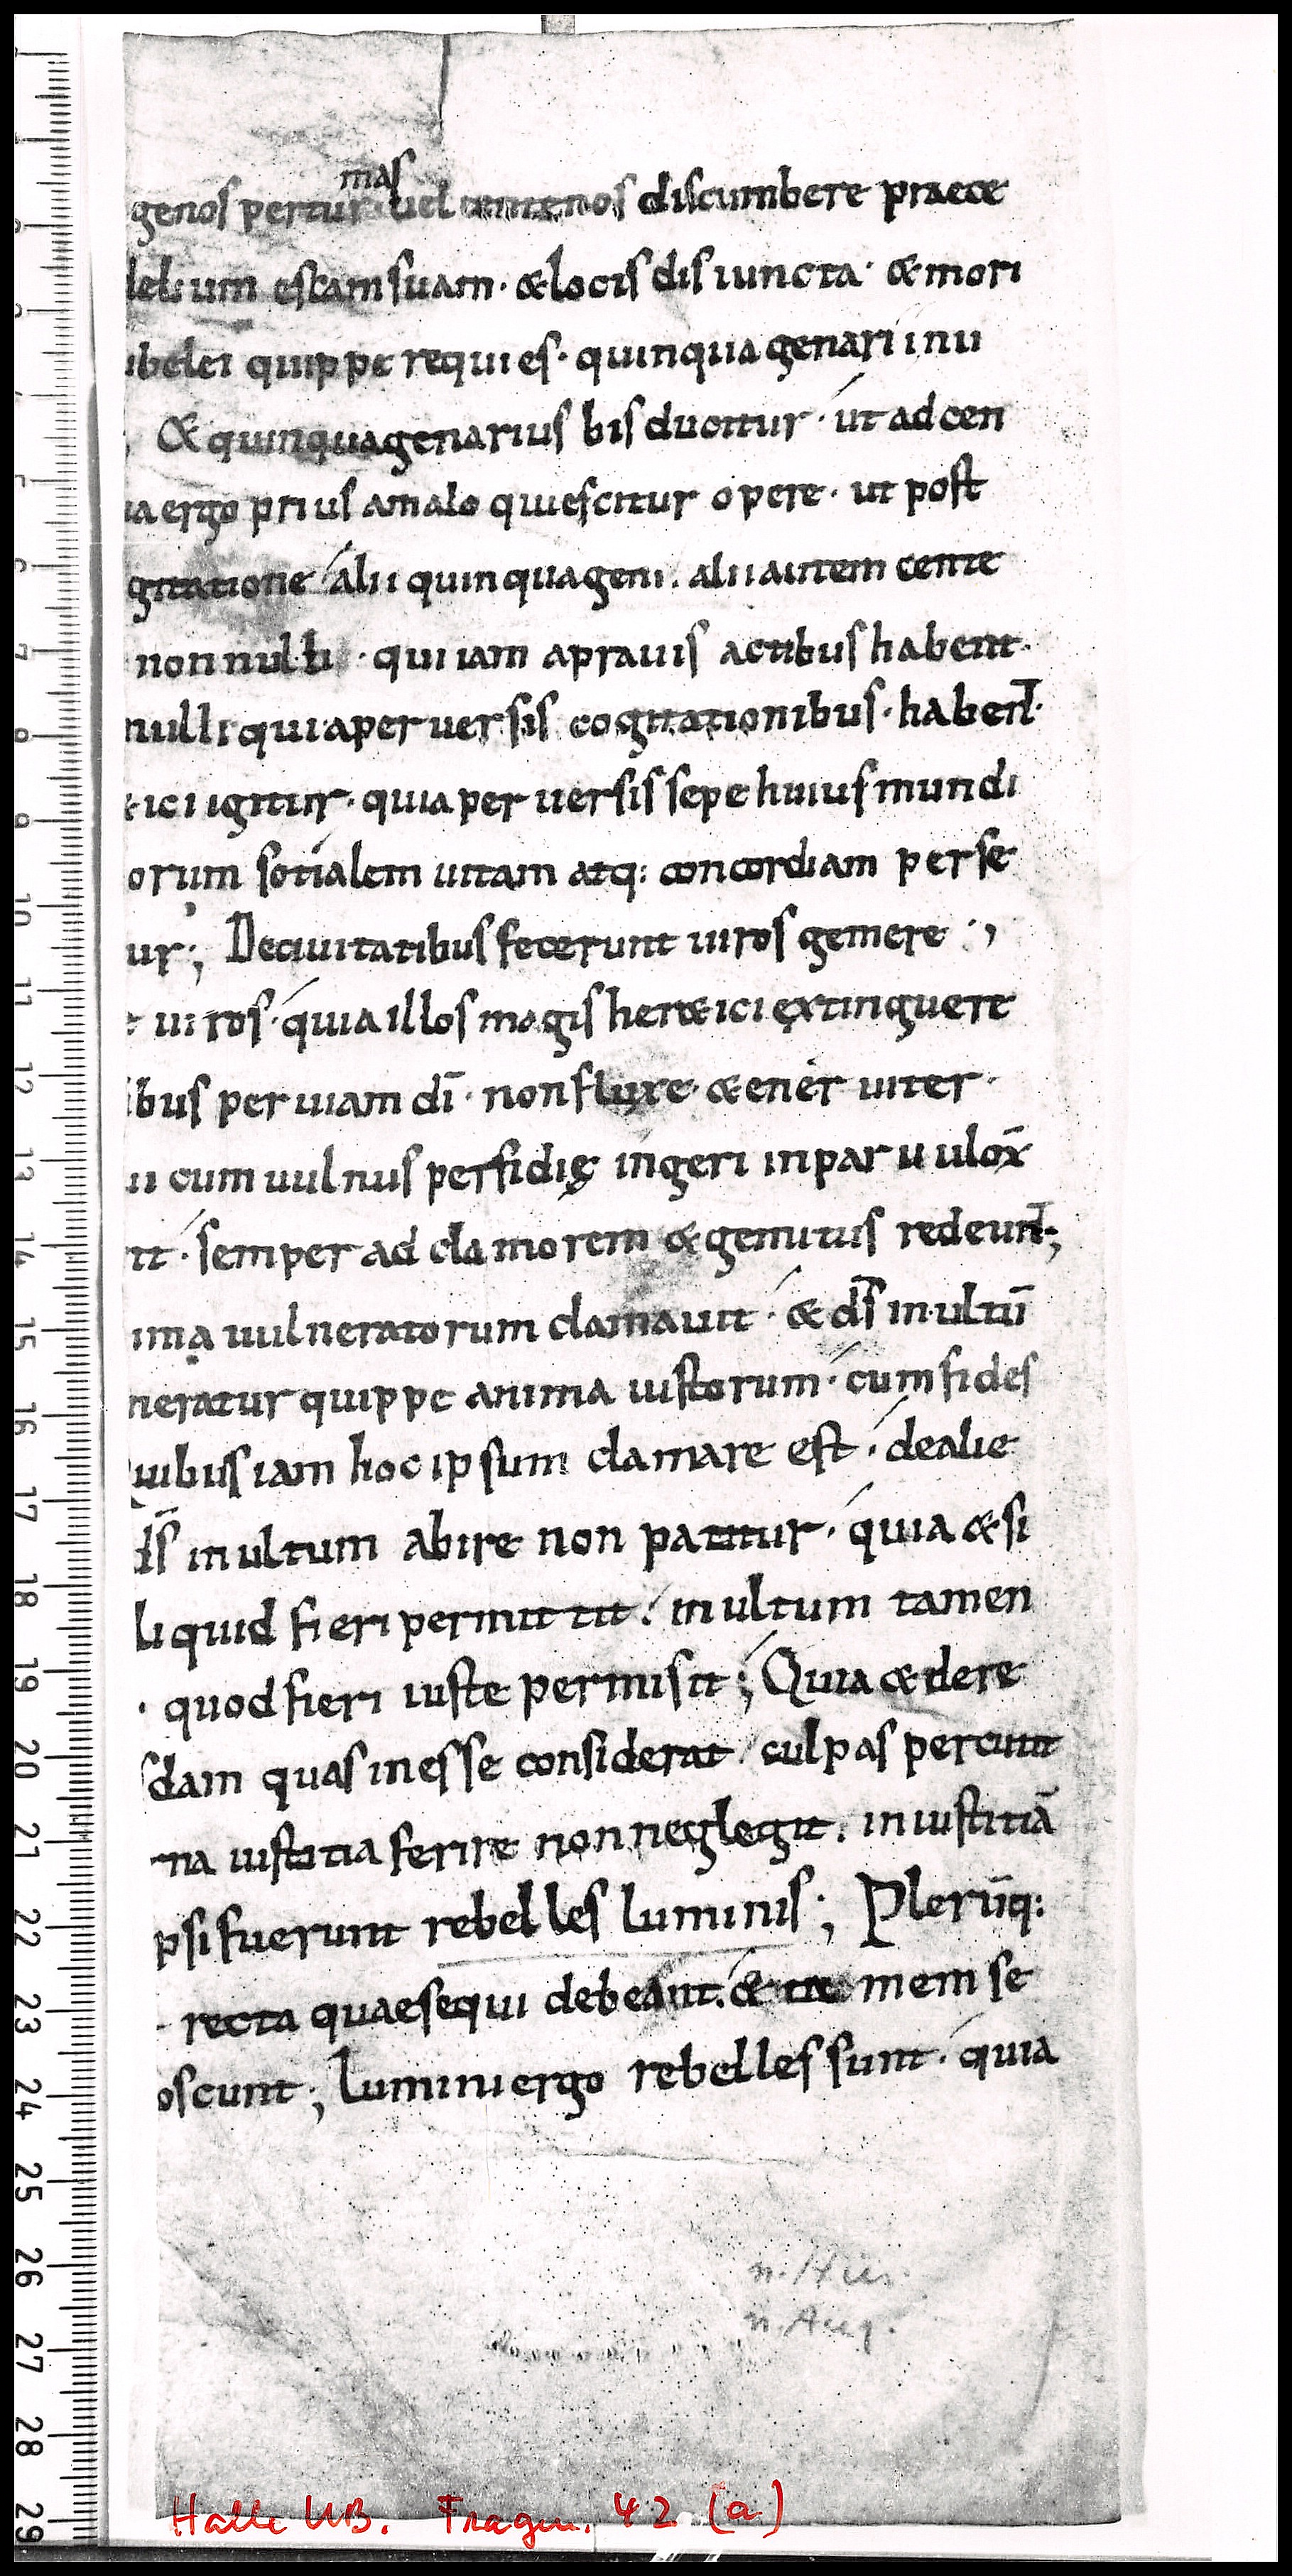 mas
genos per tur uel centenos discumbere praece
lelium escam suam · & locis disiuncta · & mori
ubelei quippe requies · quinquagenari inu
; & quinquagenarius bis ducitur · ut ad cen
ua ergo prius a malo quiescitur opere · ut post
gitatione alii quinquageni . alii autem cente
non nulli · qui iam a prauis actibus habent ·
nulli qui a peruersis cogitationibus · habent̄ ·
&ici igitur · quia peruersis sepe huius mundi
orum sotialem uitam atq: concordiam perse
ur ; De ciuitatibus fecerunt uiros gemere ;
uiros · quia illos magis her&ici extinguere
ibus per uiam dī · non fluxe · & eneruiter ·
ii cum uulnus perfidię ingeri in paruulox̄
nt · semper ad clamorem & gemitus redeunt̄ ;
ima uulneratorum clamauit · & ds̄ inultū
neratur quippe anima iustorum · cum fides
uibus iam hoc ipsum clamare est · de alie
ds̄ inultum abire non patitur · quia & si
liquid fieri permittit . inultum tamen
· quod fieri iuste permisit ; Quia cedere
sdam quas inesse considerat culpas percutit
na iustitia ferire non neglegit . iniustitiā
psi fuerunt rebelles luminis ; Plerūq:
recta quae sequi debeant . & memse
oscunt ; Lumini ergo rebelles sunt · quia
n. Hier.
n. Aug.
Halle UB. Fragm. 42 (a)
10
11
12
13
14
15
16
17
18
19
20
21
22
23
24
25
26
27
28
29